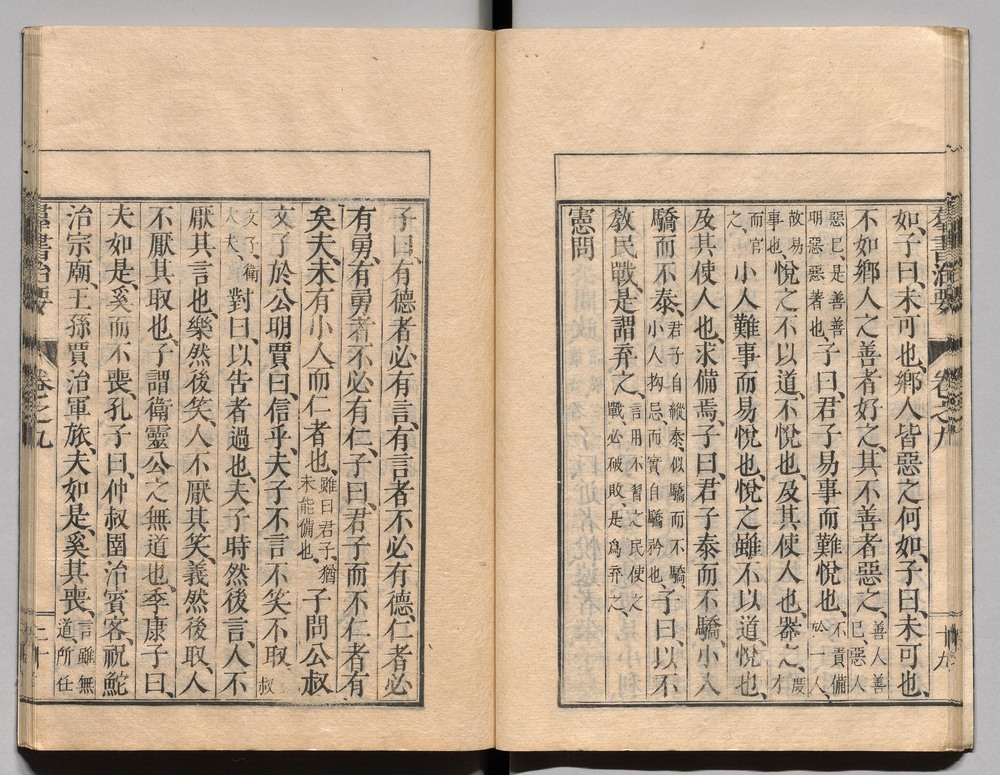 如、子曰、未可也、鄉人皆惡之何如、子曰、未可也、
不如鄉人之善者好之、其不善者惡之、善人善己、惡人
惡己、是善善明、惡惡著也、子曰、君子易事而難悅也、不責備於一人、
故易事也、悅之不以道、不悅也、及其使人也、器之、度才
而官之、小人難事而易悅也、悅之雖不以道、悅也、
及其使人也、求備焉、子曰、君子泰而不驕、小人
驕而不泰、君子自縱泰、似驕而不驕、小人拘忌、而實自驕矜也、子曰、以不
教民戰、是謂弃之、言用不習之民使之戰、必破敗、是為弃之、
憲問
子曰、有德者必有言、有言者不必有德、仁者必
有勇、有勇者不必有仁、子曰、君子而不仁者有
矣夫、未有小人而仁者也、雖曰君子、猶未能備也、子問公叔
文子於公明賈曰、信乎、夫子不言不笑不取、叔
文子、衛大夫、對曰、以告者過也、夫子時然後言、人不
厭其言也、樂然後笑、人不厭其笑、義然後取、人
不厭其取也、子謂衛靈公之無道也、季康子曰、
夫如是、奚而不喪、孔子曰、仲叔圉治賓客、祝鮀
治宗廟、王孫賈治軍旅、夫如是、奚其喪、言雖無道、所任
羣書治要 卷之九 二十